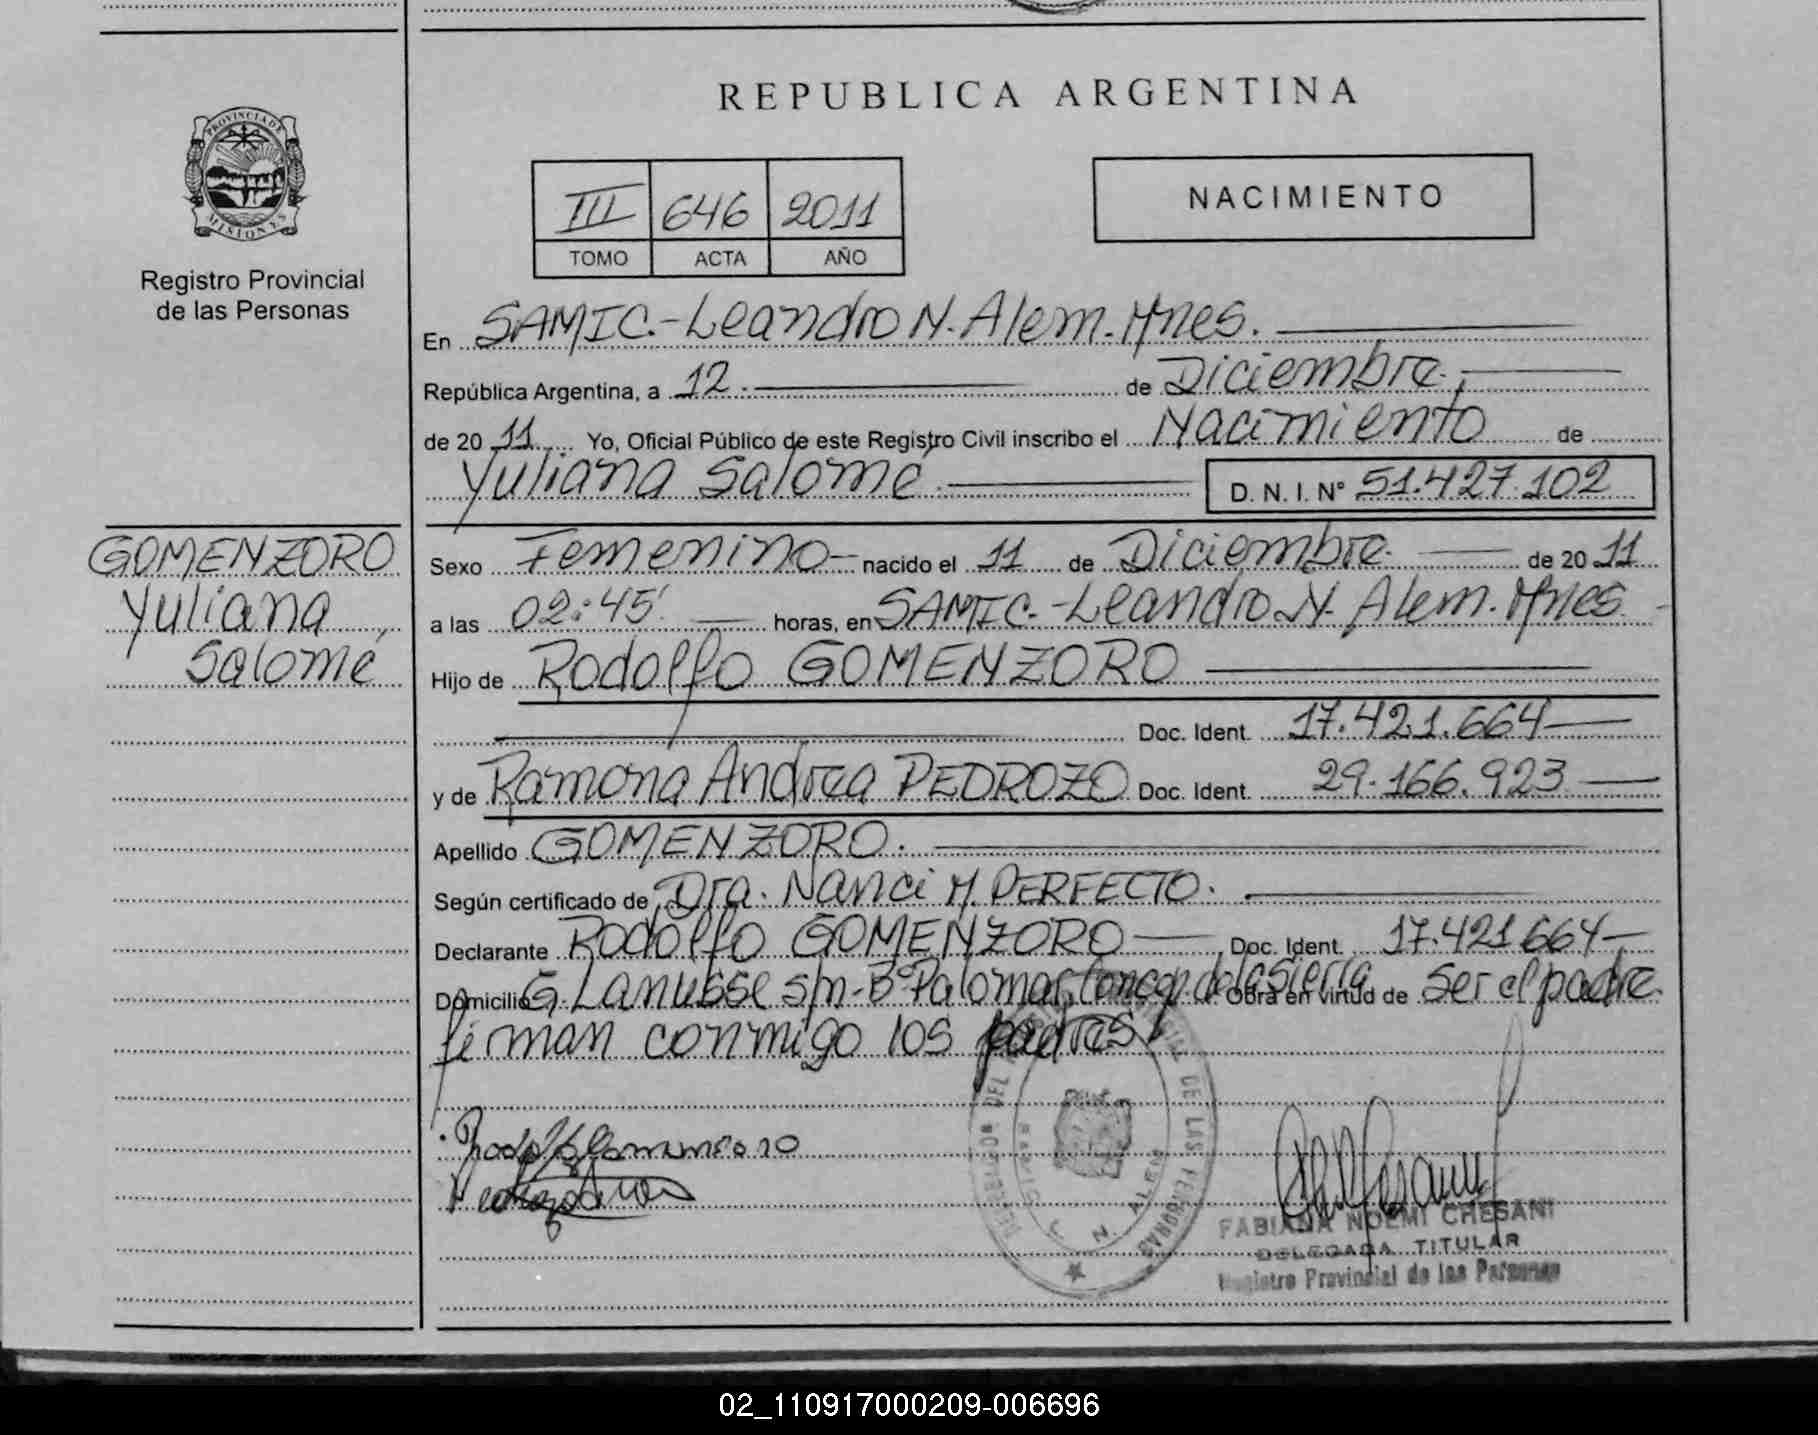 PROVINCIA DE
MISIONES
Registro Provincial
de las Personas
GOMENZORO
Yuliana
Salomé
REPUBLICA ARGENTINA
III 646 2011
TOMO ACTA AÑO
NACIMIENTO
En SAMIC.-Leandro N. Alem. Mnes.
República Argentina, a 12. de Diciembre.
de 20 11 Yo, Oficial Público de este Registro Civil inscribo el Nacimiento de
Yuliana Salomé. D. N. I. Nº 51.427.102
Sexo Femenino nacido el 11 de Diciembre de 20 11
a las 02:45' horas, en SAMIC.-Leandro N. Alem. Mnes
Hijo de Rodolfo GOMENZORO
Doc. Ident. 17.421.664
y de Ramona Andrea PEDROZO Doc. Ident. 29.166.923
Apellido GOMENZORO.
Según certificado de Dra. Nanci M. PERFECTO.
Declarante Rodolfo GOMENZORO Doc. Ident. 17.421.664
Domicilio G. Lanusse s/n-Bº Palomar, Concep. de la Sierra Obra en virtud de ser el padre.
firman conmigo los padres
DE LAS PERSONAS
L. N. ALEM
FABIANA NOEMI CHESANI
DELEGADA TITULAR
Registro Provincial de las Personas
02_110917000209-006696